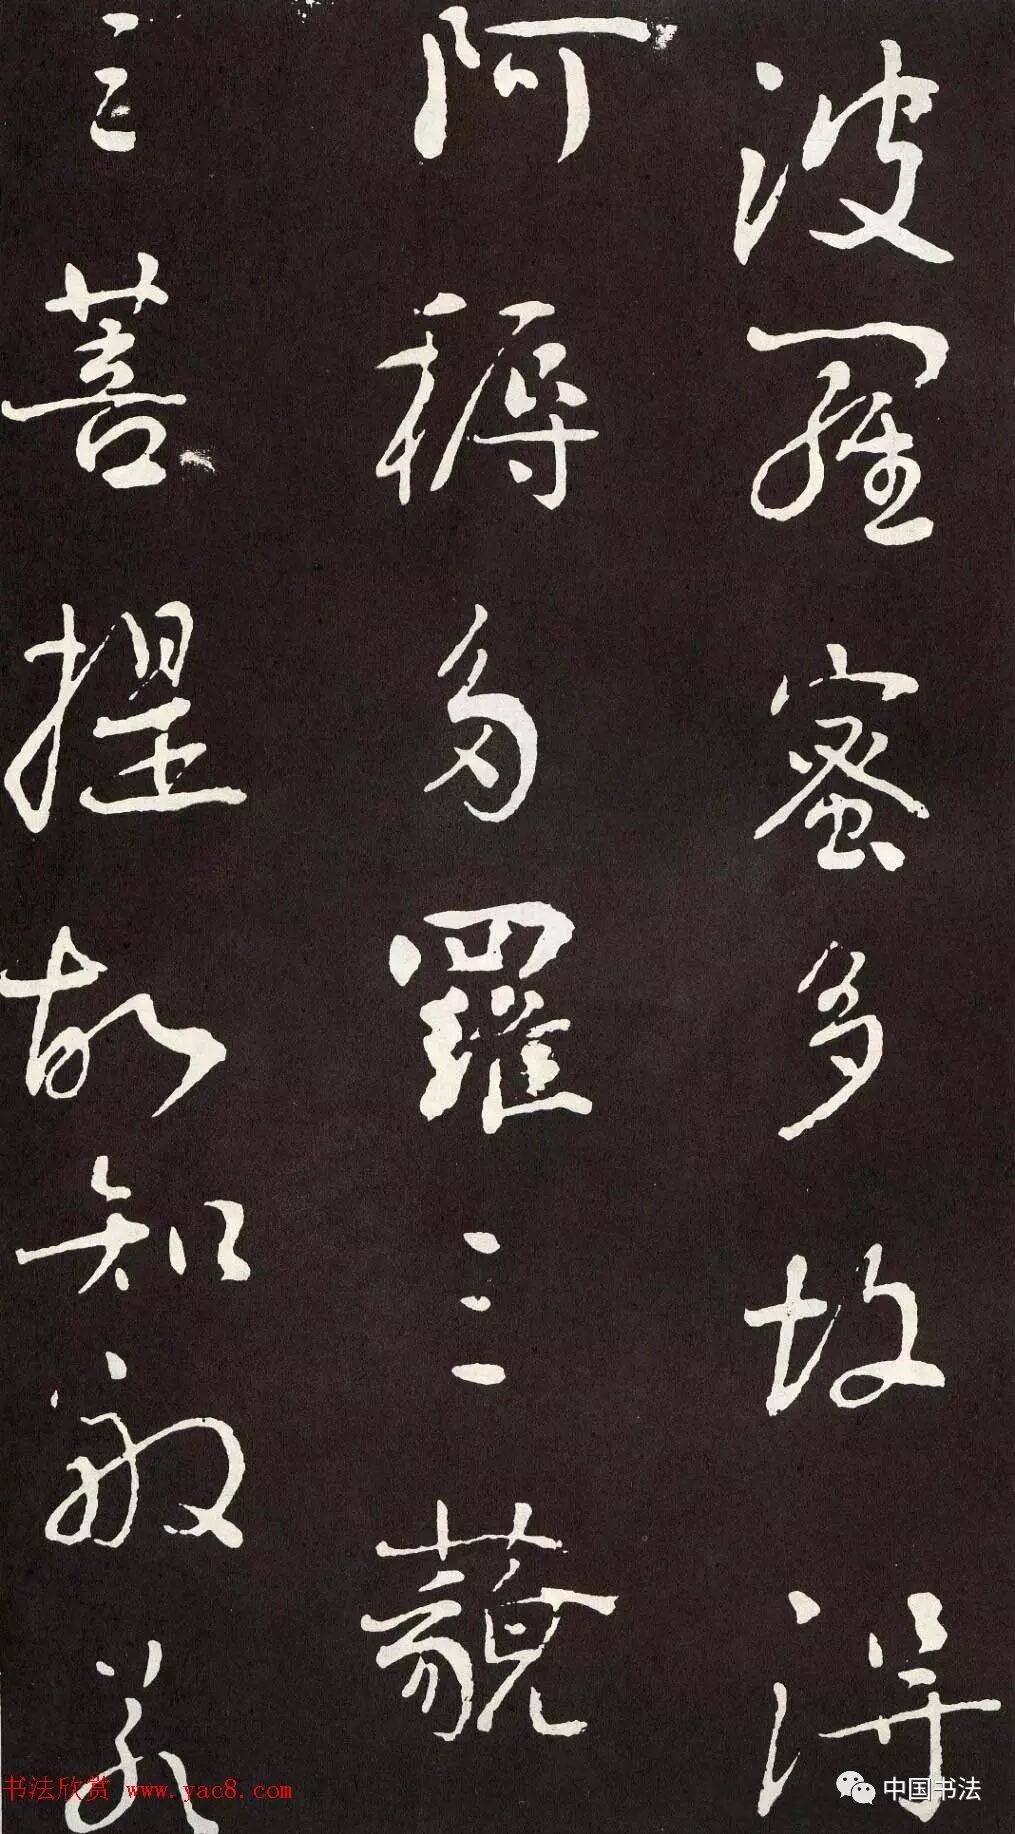 波羅蜜多故得
阿耨多羅三藐
三菩提故知般若
书法欣赏 www.yac8.com
中国书法